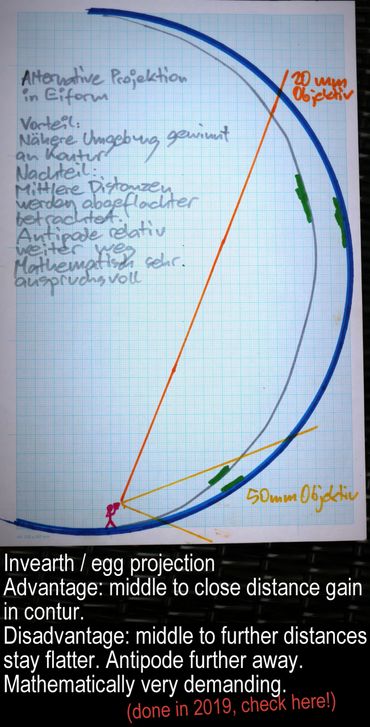 Alternative Projektion
in Eiform
Vorteil:
Nähere Umgebung gewinnt
an Kontur
Nachteil:
Mittlere Distanzen
werden abgeflachter
betrachtet.
Antipode relativ
weiter weg
Mathematisch sehr
anspruchsvoll
20mm
Objektiv
50mm Objektiv
Invearth / egg projection
Advantage: middle to close distance gain
in contur.
Disadvantage: middle to further distances
stay flatter. Antipode further away.
Mathematically very demanding.
(done in 2019, check here!)